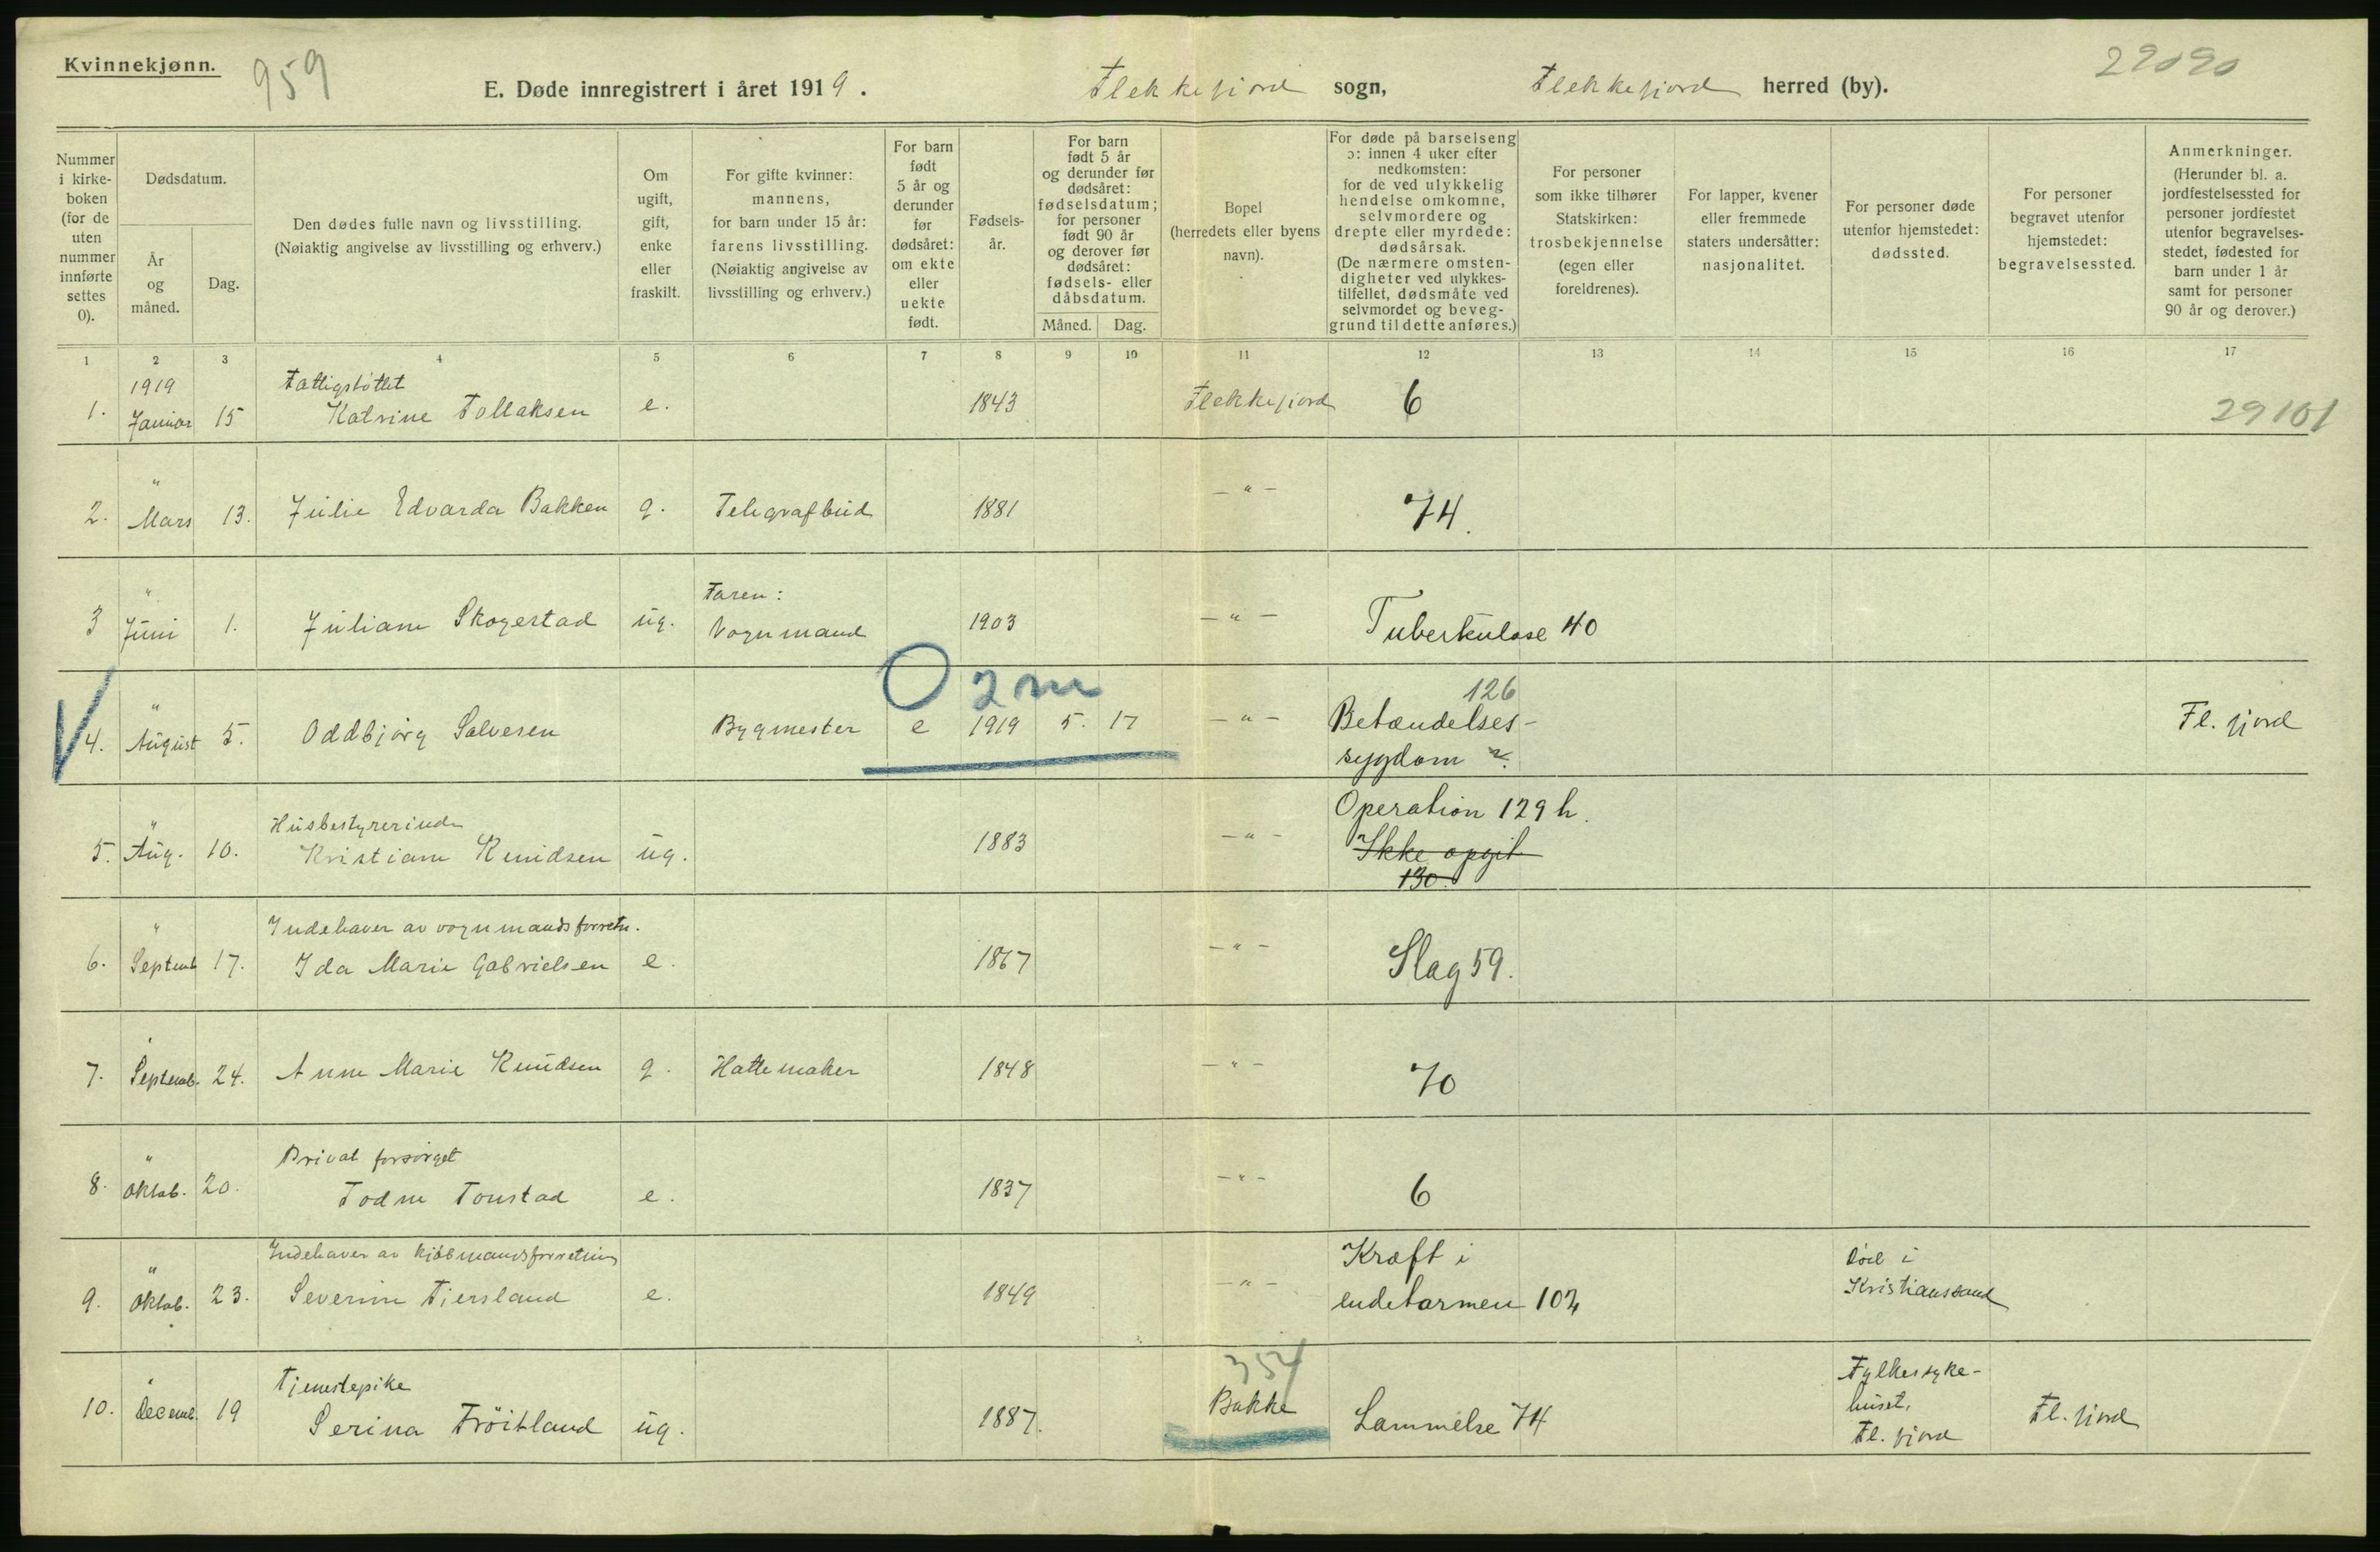 Kvinnekjønn.
959
E. Døde innregistrert i året 1919.
Flekkefjord sogn,
Flekkefjord herred (by).
29090
Nummer
i kirke-
boken
(for de
uten
nummer
innførte
settes
0).
Dødsdatum.
År
og
måned.
Dag.
Den dødes fulle navn og livsstilling.
(Nøiaktig angivelse av livsstilling og erhverv.)
Om
ugift,
gift,
enke
eller
fraskilt.
For gifte kvinner:
mannens,
for barn under 15 år:
farens livsstilling.
(Nøiaktig angivelse av
livsstilling og erhverv.)
For barn
født
5 år og
derunder
før
dødsåret:
om ekte
eller
uekte
født.
Fødsels-
år.
For barn
født 5 år
og derunder før
dødsåret:
fødselsdatum;
for personer
født 90 år
og derover før
dødsåret:
fødsels- eller
dåbsdatum.
Måned.
Dag.
Bopel
(herredets eller byens
navn).
For døde på barselseng
ɔ: innen 4 uker efter
nedkomsten:
for de ved ulykkelig
hendelse omkomne,
selvmordere og
drepte eller myrdede:
dødsårsak.
(De nærmere omsten-
digheter ved ulykkes-
tilfellet, dødsmåte ved
selvmordet og beveg-
grund til dette anføres.)
For personer
som ikke tilhører
Statskirken:
trosbekjennelse
(egen eller
foreldrenes).
For lapper, kvener
eller fremmede
staters undersåtter:
nasjonalitet.
For personer døde
utenfor hjemstedet:
dødssted.
For personer
begravet utenfor
hjemstedet:
begravelsessted.
Anmerkninger.
(Herunder bl. a.
jordfestelsessted for
personer jordfestet
utenfor begravelses-
stedet, fødested for
barn under 1 år
samt for personer
90 år og derover.)
1 2 3 4 5 6 7 8 9 10 11 12 13 14 15 16 17
1919 Fattigstöttet
1. Januar 15 Katrine Tollaksen e. 1843 Flekkefjord 6 29101
"
2. Mars 13. Julie Edvarda Bakken g. Telegrafbud 1881 -"- 74.
" Faren:
3 Juni 1. Juliane Skogestad ug. Vognmand 1903 -"- Tuberkulose 40
O 2 m
" 126
4. August 5. Oddbjörg Salvesen Bygmester e 1919 5. 17 -"- Betændelses- Fl. fjord
sygdom
" Husbestyrerinde Operation 129 h.
5. Aug. 10. Kristiane Knudsen ug. 1883 -"- Ikke opgit
130.
" Indehaver av vognmandsforretn.
6. Septemb 17. Ida Marie Gabrielsen e. 1867 -"- Slag 59.
7. Septemb. 24. Anne Marie Knudsen g. Hattemaker 1848 -"- 70
" Privat forsörget
8. Oktob. 20. Todne Tonstad e. 1837 -"- 6
" Indehaver av kjöbmandsforretning Kræft i Död i
9. Oktob. 23. Severine Fjersland e. 1849 -"- endetarmen 102 Kristianssand
" Tjenestepike 354 Fylkessyke-
10. Decemb. 19 Serina Fröitland ug. 1887. Bakke Lammelse 74 huset, Fl. fjord
Fl. fjord